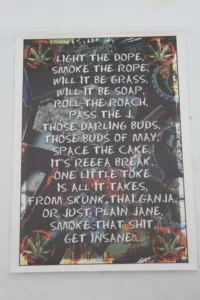 LIGHT THE DOPE,
SMOKE THE ROPE,
WILL IT BE GRASS,
WILL IT BE SOAP,
ROLL THE ROACH,
PASS THE J,
THOSE DARLING BUDS,
THOSE BUDS OF MAY,
SPACE THE CAKE,
IT'S REEFA BREAK,
ONE LITTLE TOKE
IS ALL IT TAKES,
FROM SKUNK, THAI GANJA,
OR JUST PLAIN JANE,
SMOKE THAT SHIT
GET INSANE...